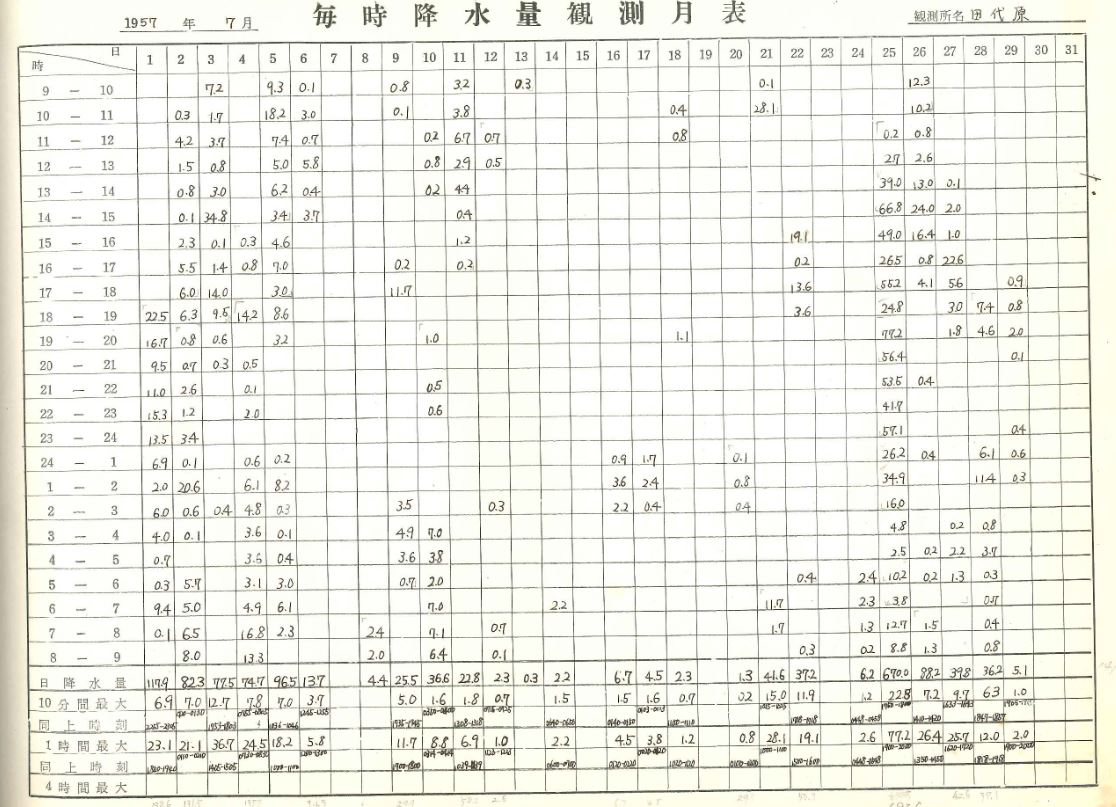 1957 年 7月 毎時降水量観測月表 観測所名 田代原
日 時 1 2 3 4 5 6 7 8 9 10 11 12 13 14 15 16 17 18 19 20 21 22 23 24 25 26 27 28 29 30 31
9 — 10 7.2 9.3 0.1 0.8 3.2 0.3 0.1 12.3
10 — 11 0.3 1.7 18.2 3.0 0.1 3.8 0.4 28.1 10.2
11 — 12 4.2 3.7 7.4 0.7 0.2 6.7 0.7 0.8 0.2 0.8
12 — 13 1.5 0.8 5.0 5.8 0.8 2.9 0.5 2.7 2.6
13 — 14 0.8 3.0 6.2 0.4 0.2 4.4 39.0 13.0 0.1
14 — 15 0.1 34.8 3.4 3.7 0.4 66.8 24.0 2.0
15 — 16 2.3 0.1 0.3 4.6 1.2 19.1 49.0 16.4 1.0
16 — 17 5.5 1.4 0.8 7.0 0.2 0.2 0.2 26.5 0.8 22.6
17 — 18 6.0 14.0 3.0 11.7 13.6 55.2 4.1 5.6 0.9
18 — 19 22.5 6.3 9.5 14.2 8.6 3.6 24.8 3.0 7.4 0.8
19 — 20 16.7 0.8 0.6 3.2 1.0 1.1 77.2 1.8 4.6 2.0
20 — 21 9.5 0.7 0.3 0.5 56.4 0.1
21 — 22 11.0 2.6 0.1 0.5 53.5 0.4
22 — 23 15.3 1.2 2.0 0.6 41.7
23 — 24 13.5 3.4 57.1 0.4
24 — 1 6.9 0.1 0.6 0.2 0.9 1.7 0.1 26.2 0.4 6.1 0.6
1 — 2 2.0 20.6 6.1 8.2 3.6 2.4 0.8 34.9 11.4 0.3
2 — 3 6.0 0.6 0.4 4.8 0.3 3.5 0.3 2.2 0.4 0.4 16.0
3 — 4 4.0 0.1 3.6 0.1 4.9 7.0 4.8 0.2 0.8
4 — 5 0.7 3.5 0.4 3.6 3.8 2.5 0.2 2.2 3.7
5 — 6 0.3 5.7 3.1 3.0 0.7 2.0 0.4 2.4 10.2 0.2 1.3 0.3
6 — 7 9.4 5.0 4.9 6.1 7.0 2.2 11.7 2.3 3.8 0.7
7 — 8 0.1 6.5 16.8 2.3 2.4 7.1 0.7 1.7 1.3 12.7 1.5 0.4
8 — 9 8.0 13.3 2.0 6.4 0.1 0.3 0.2 8.8 1.3 0.8
日降水量 117.9 82.3 77.5 74.7 96.5 13.7 4.4 25.5 36.6 22.8 2.3 0.3 2.2 6.7 4.5 2.3 1.3 41.6 37.2 6.2 670.0 88.2 39.8 36.2 5.1
10分間最大 6.9 7.0 12.7 7.8 7.0 3.7 5.0 1.6 1.8 0.7 1.5 1.5 1.6 0.7 0.2 15.0 11.9 1.2 22.8 7.2 9.7 6.3 1.0
同上時刻
1時間最大 23.1 21.1 36.7 24.5 18.2 5.8 11.7 8.8 6.9 1.0 2.2 4.5 3.8 1.2 0.8 28.1 19.1 2.6 77.2 26.4 25.7 12.0 2.0
同上時刻
4時間最大